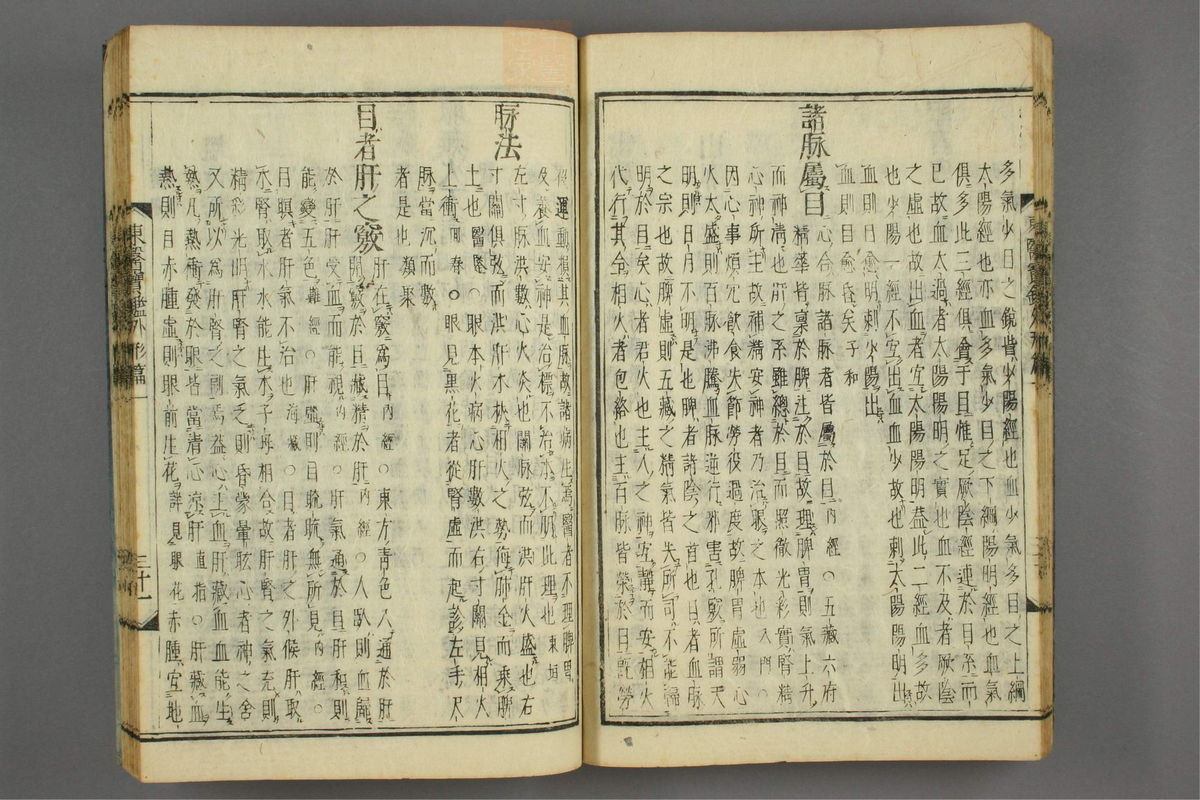 多氣少目之銳眥少陽經也血少氣多目之上綱
太陽經也亦血多氣少目之下綱陽明經也血氣
俱多此三經俱會于目惟足厥陰經連於目系而
已故血太過者太陽陽明之實也血不及者厥陰
之虛也故出血者宜太陽陽明盖此二經血多故
也少陽一經不宜出血血少故也刺太陽陽明出
血則目愈明刺少陽出
血則目愈昏矣子和
諸脉屬目
心合脉諸脉者皆屬於目內經○五藏六府
精華皆稟於脾注於目故理脾胃則氣上升
而神淸也肝之系雖總於目而照徹光彩實腎精
心神所主故補精安神者乃治眼之本也入門○
因心事煩冗飮食失節勞役過度故脾胃虛弱心
火太盛則百脉沸騰血脉逆行邪害孔竅所謂天
明則日月不明是也脾者諸陰之首也目者血脉
之宗也故脾虛則五藏之精氣皆失所司不能歸
明於目矣心者君火也主人之神宜靜而安相火
代行其令相火者包絡也主百脉皆榮於目旣勞
役運動損其血脉故諸病生焉醫者不理脾胃
及養血安神是治標不治本不明此理也東垣
脉法
左寸脉洪數心火炎也關脉弦而洪肝火盛也右
寸關俱弦而洪肝木挾相火之勢侮肺金而乘脾
土也醫鑑○眼本火病心肝數洪右寸關見相火
上衝回春○眼見黑花者從腎虛而起診左手尺
脉當沉而數
者是也類聚
目者肝之竅
肝在竅爲目內經○東方靑色入通於肝
開竅於目藏精於肝內經○人臥則血歸
於肝肝受血而能視內經○肝氣通於目肝和則
能變五色難經○肝虛則目䀮䀮無所見內經○
目瞑者肝氣不治也海藏○目者肝之外候肝取
木腎取水水能生木子母相合故肝腎之氣充則
精彩光明肝腎之氣乏則昏蒙暈眩心者神之舍
又所以爲肝腎之副焉盖心主血肝藏血血能生
熱凡熱衝發於眼皆當淸心涼肝直指○肝藏血
熱則目赤腫虛則眼前生花詳見眼花赤腫宜地
東醫寶鑑外形篇一
三十一